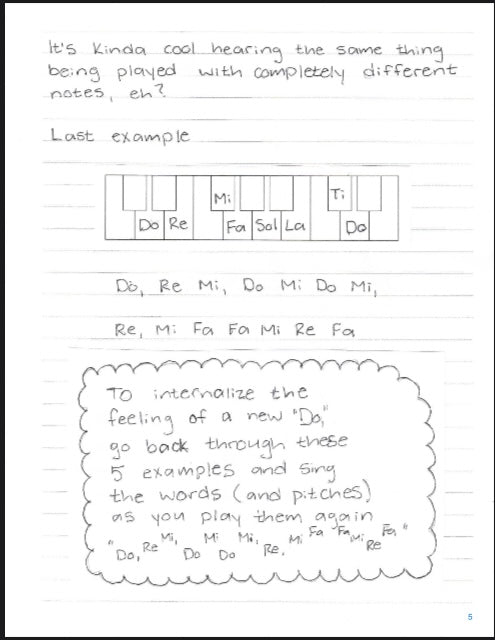 It's Kinda cool hearing the same thing
being played with completely different
notes, eh?
Last example
Mi Ti
Do Re Fa Sol La Do
Do, Re Mi, Do Mi Do Mi,
Re, Mi Fa Fa Mi Re Fa
To internalize the
feeling of a new "Do,"
go back through these
5 examples and sing
the words (and pitches)
as you play them again
"Do, Re Mi, Do Mi Do Mi, Re, Mi Fa Fa Mi Re Fa"
5